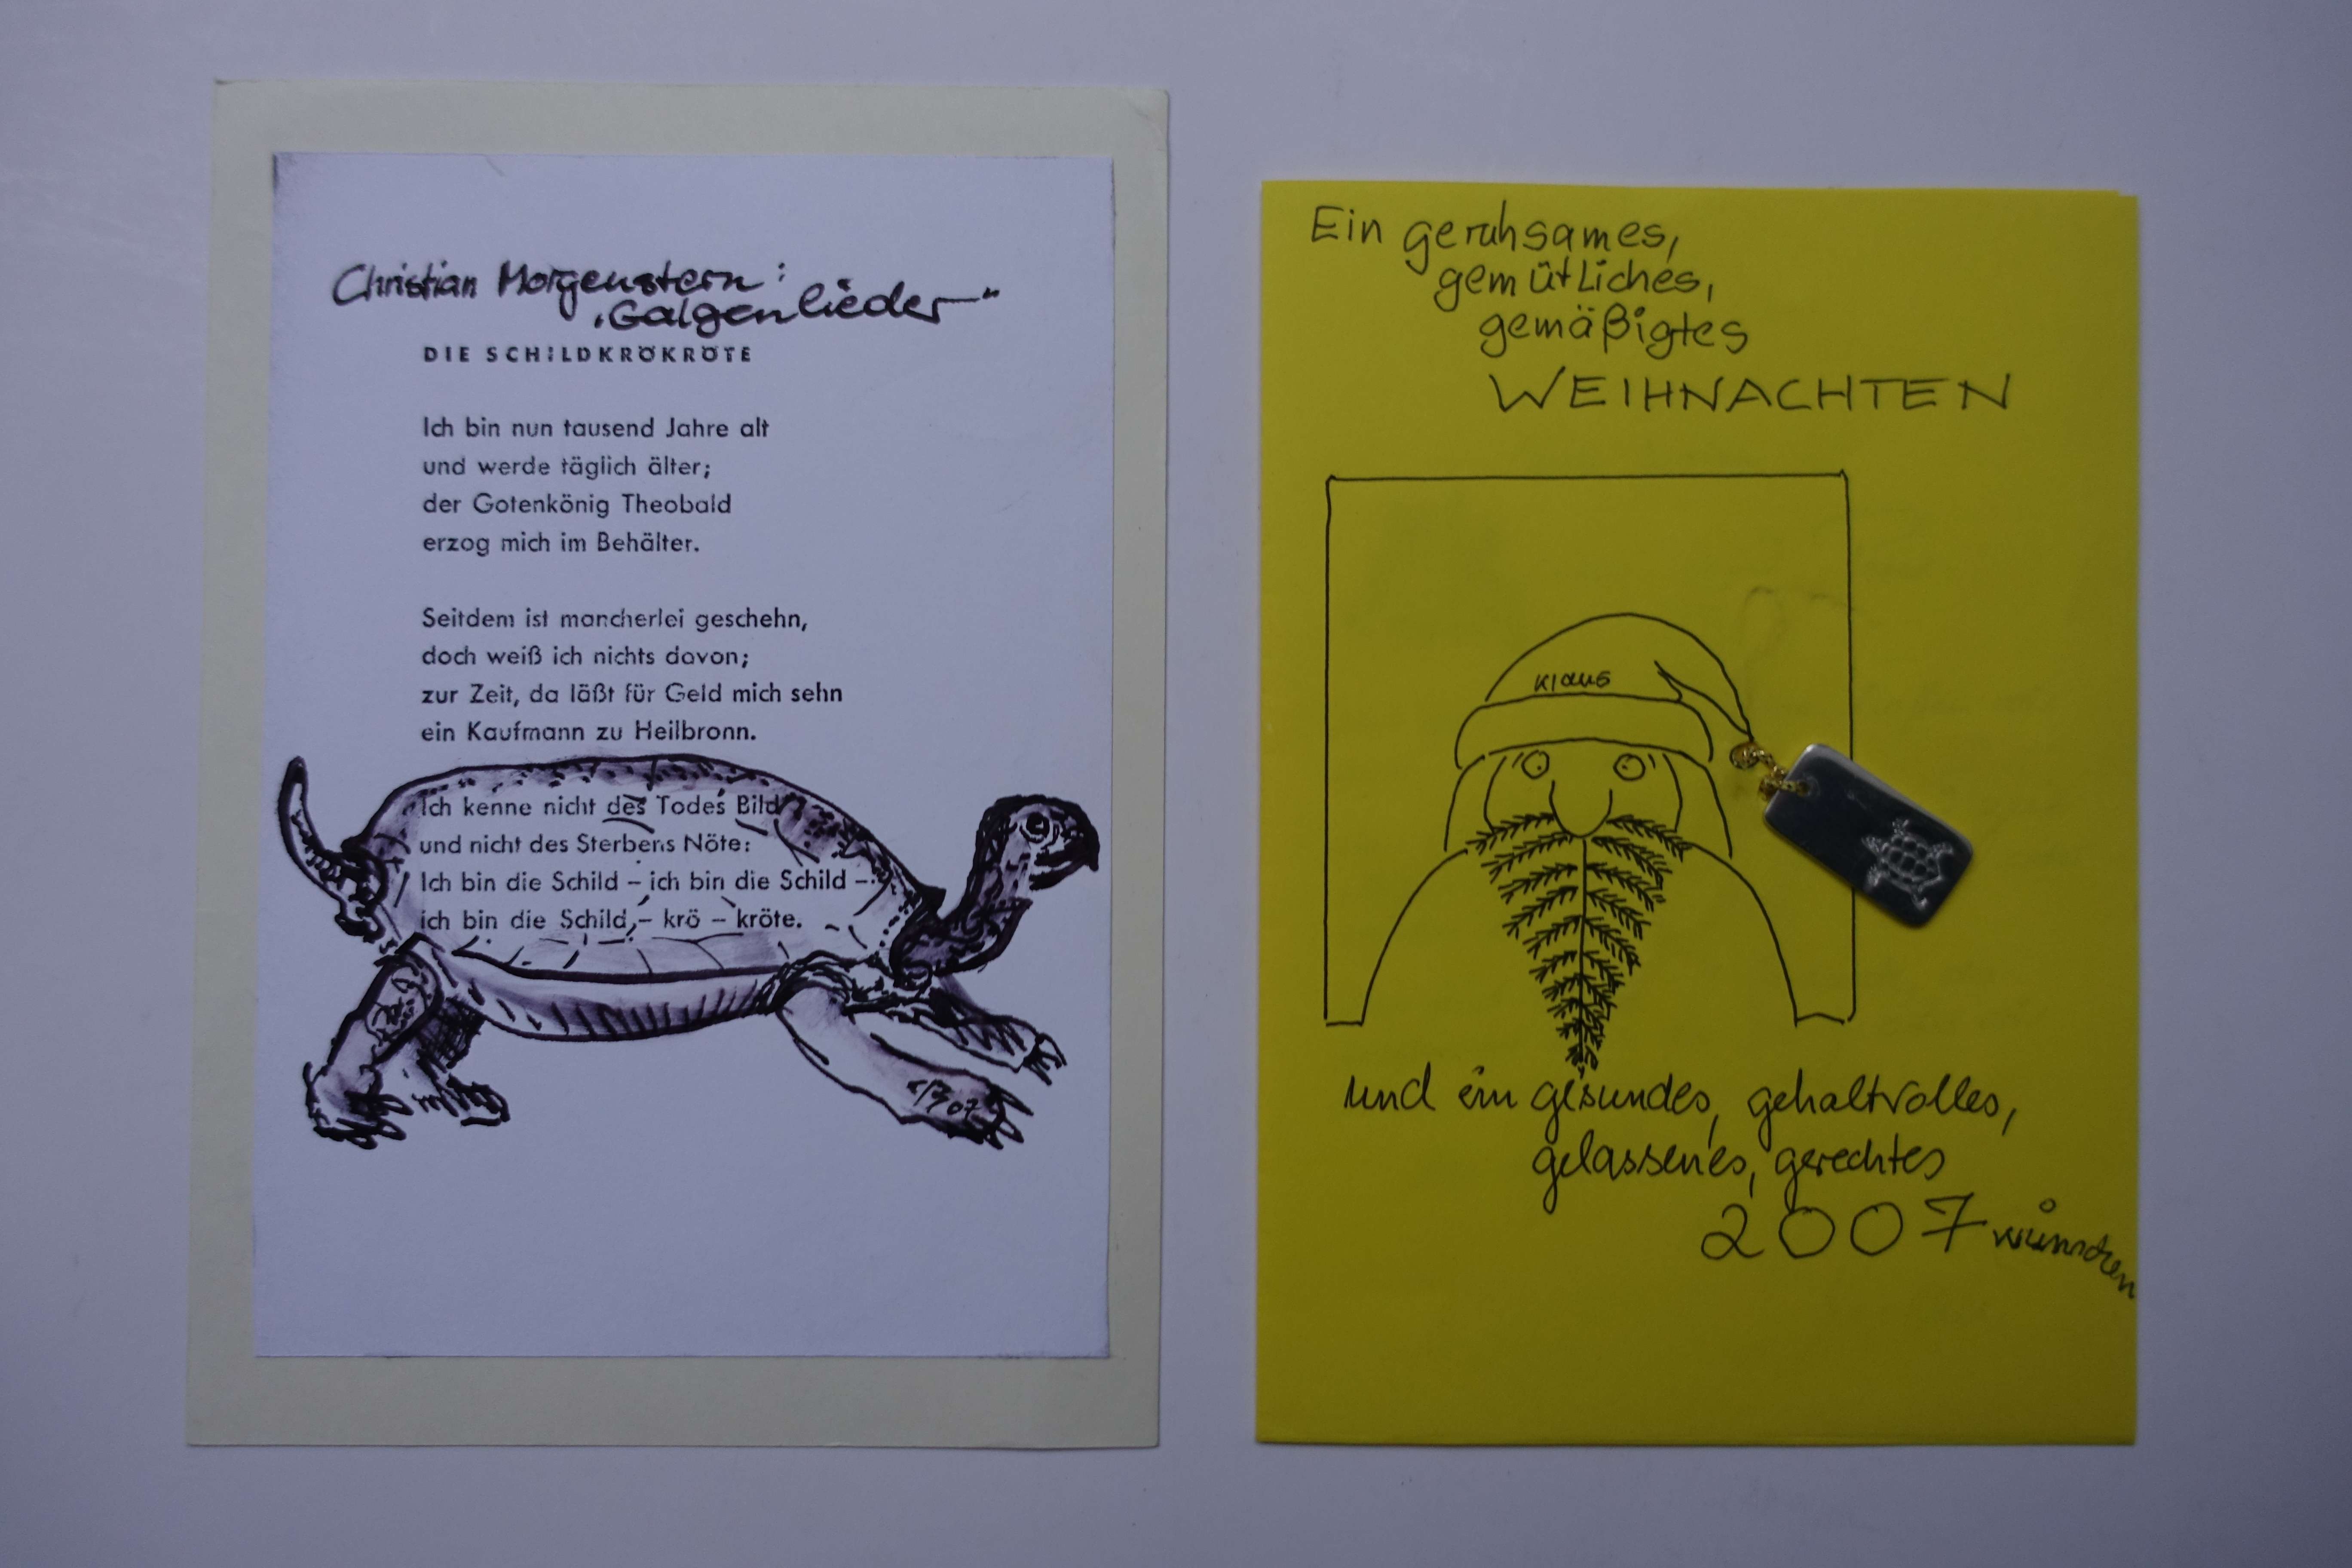 Christian Morgenstern:
„Galgenlieder"
DIE SCHILDKRÖKRÖTE
Ich bin nun tausend Jahre alt
und werde täglich älter;
der Gotenkönig Theobald
erzog mich im Behälter.
Seitdem ist mancherlei geschehn,
doch weiß ich nichts davon;
zur Zeit, da läßt für Geld mich sehn
ein Kaufmann zu Heilbronn.
Ich kenne nicht des Todes Bild
und nicht des Sterbens Nöte:
Ich bin die Schild – ich bin die Schild –
ich bin die Schild – krö – kröte.
Ein geruhsames,
gemütliches,
gemäßigtes
WEIHNACHTEN
Klaus
und ein gesundes, gehaltvolles,
gelassenes, gerechtes
2007 wünschen